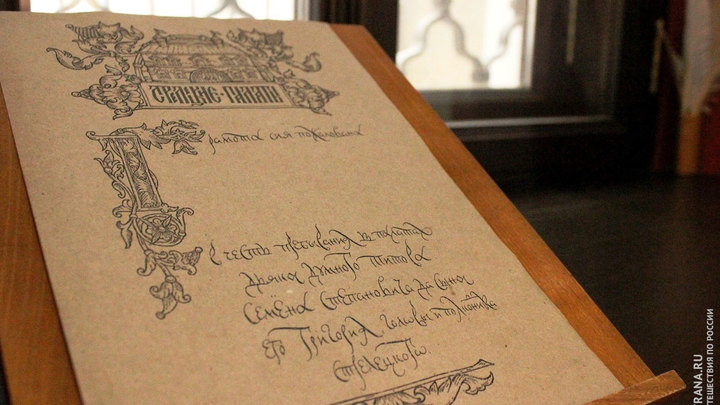 ПАЛАТЫ
Грамота сия пожалована
в честь пребывания в палатах
дьяка думного Титова
Семёна Степановича да сына
его Григория головы и полковника
стрелецкого.
RANA.RU
ТЕШЕСТВИЯ ПО РОССИИ